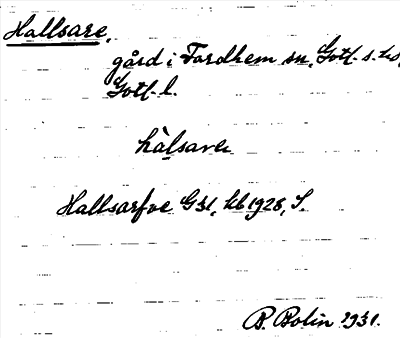 Hallsare,
gård i Fardhem sn, Gotl. s. hd,
Gotl. l.
hàlsare
Hallsarfve G 31, kb 1928, S.
B. Bolin 1931.